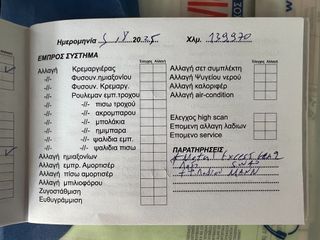 Ημερομηνία 5 / 8 2025 Χλμ. 139970
ΕΜΠΡΟΣ ΣΥΣΤΗΜΑ
Έλεγχος Αλλαγή
Αλλαγή Κρεμαργιέρας
-//- Φυσουν.ημιαξονίου
-//- Φυσουν. Κρεμαργ.
-//- Ρουλεμαν εμπ.τροχου
-//- -//- πισω τροχού
-//- -//- ακρομπαρου
-//- -//- μπαλάκια
-//- -//- ημιμπαρα
-//- -//- ψαλιδια εμπ.
-//- -//- ψαλιδια πισω
Αλλαγή ημιαξονίων
Αλλαγή εμπρ. Αμορτισέρ
Αλλαγή πίσω αμορτισέρ
Αλλαγή μπιλοφόρου
Ζυγοστάθμιση
Ευθυγράμμιση
Έλεγχος Αλλαγή
Αλλαγή σετ συμπλέκτη
Αλλαγή Ψυγείου νερού
Αλλαγή καλοριφέρ
Αλλαγή air-condition
Ελεγχος high scan
Επομενη αλλαγη λαδιων
Επομενο service
ΠΑΡΑΤΗΡΗΣΕΙΣ
Metal
MANN